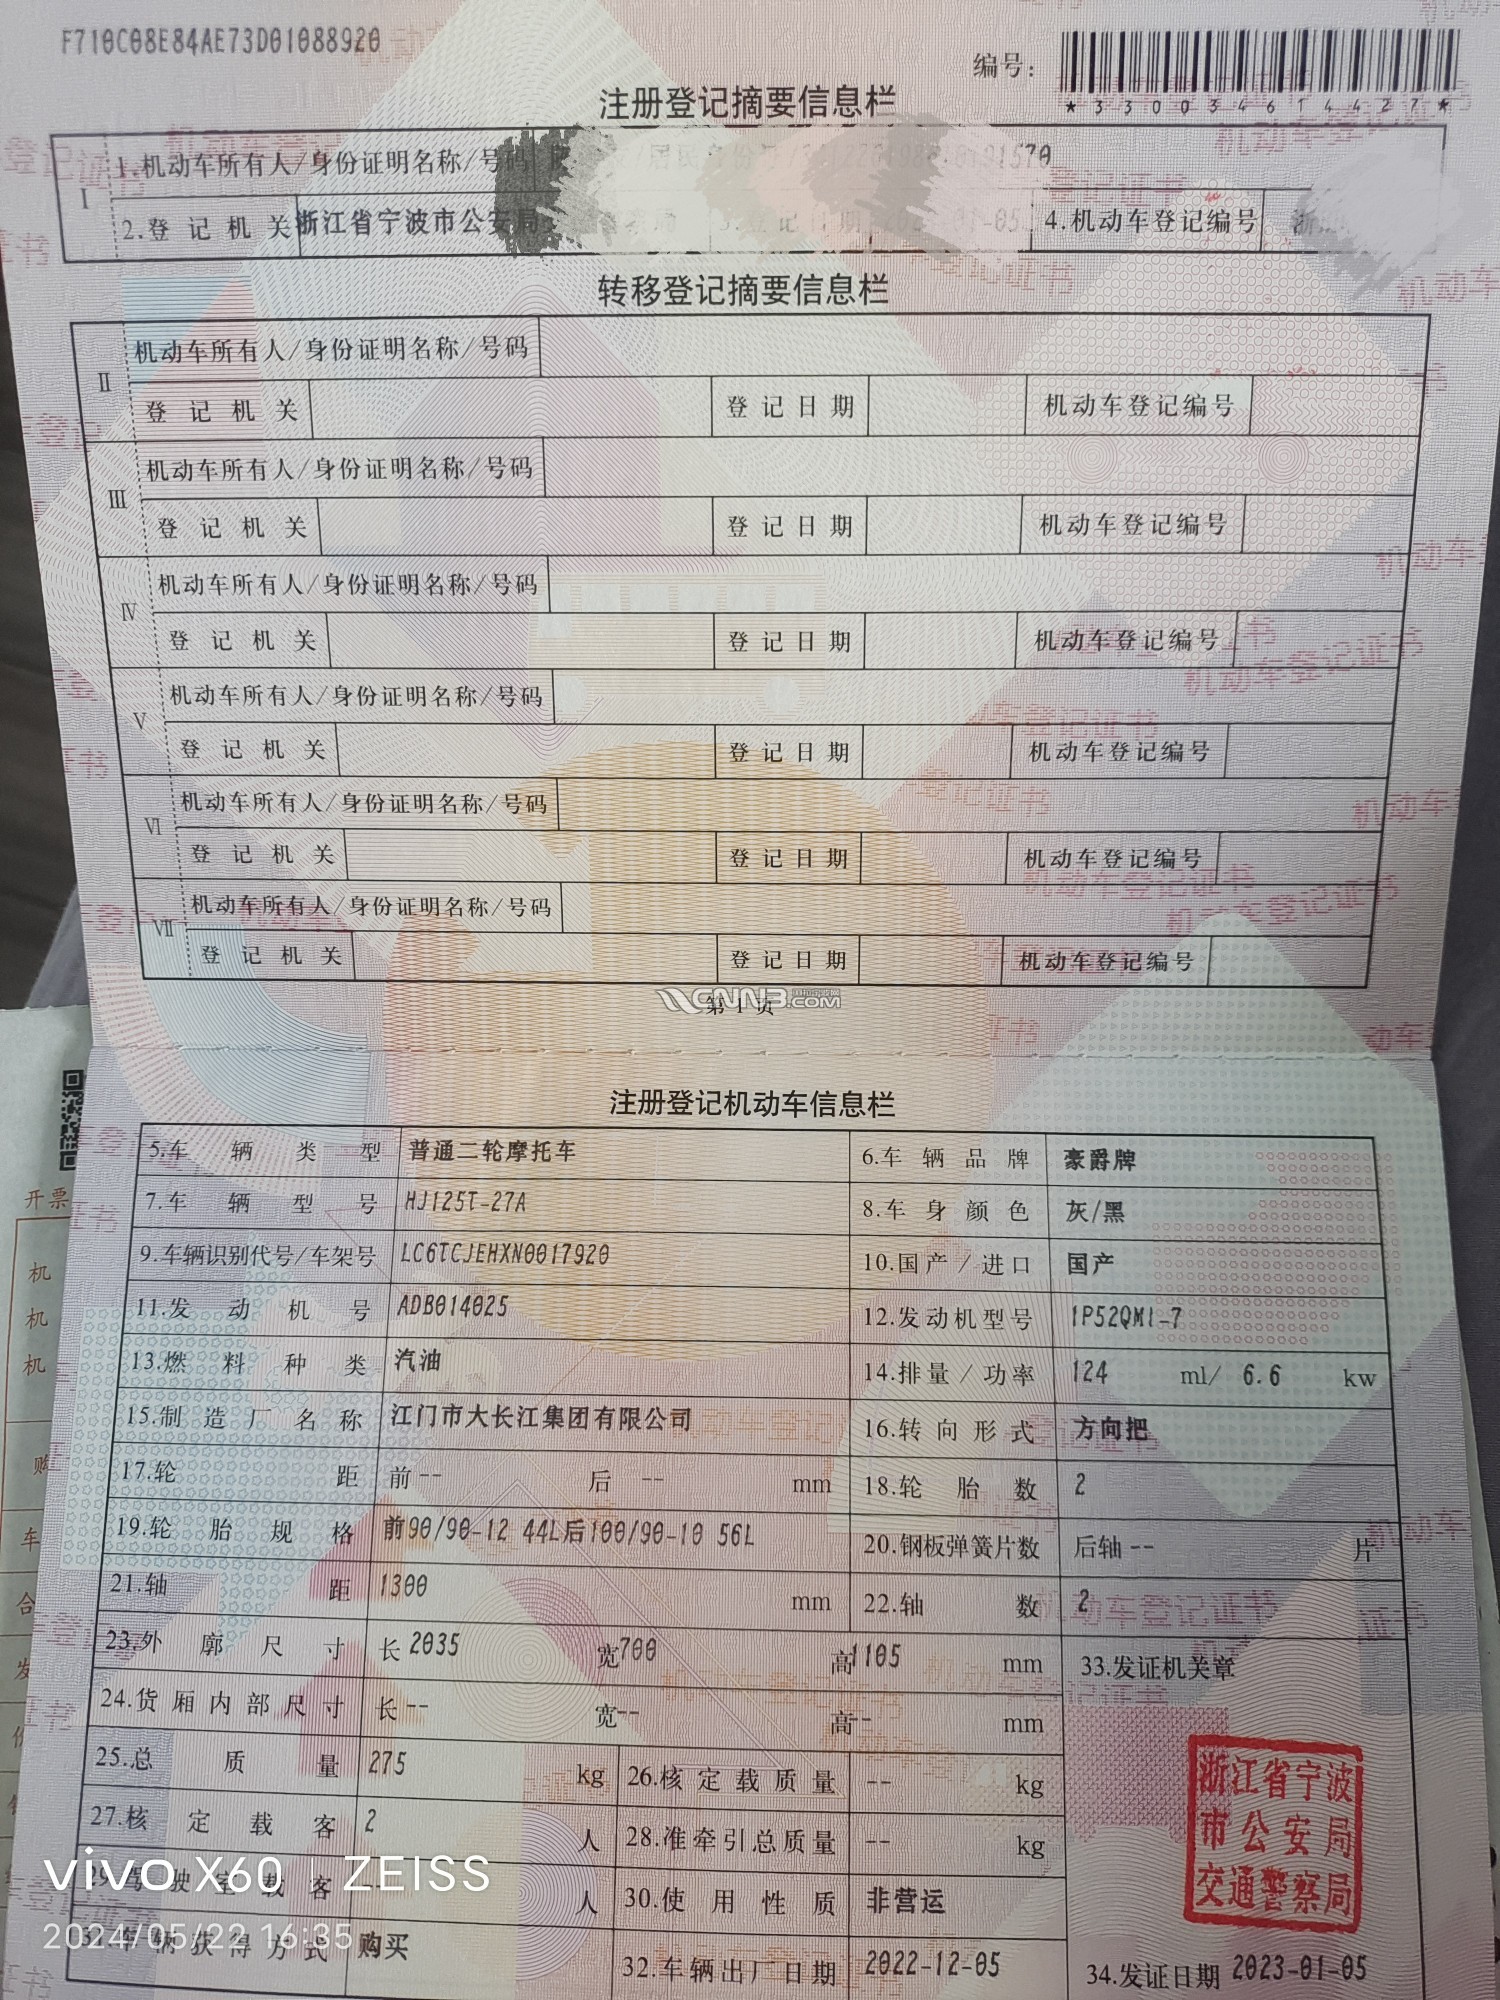 F710C08E84AE73D01088920
编号:
*330034614427*
注册登记摘要信息栏
I 1.机动车所有人/身份证明名称/号码
2.登记机关 浙江省宁波市公安局 登记日期 4.机动车登记编号 浙
转移登记摘要信息栏
II 机动车所有人/身份证明名称/号码
登记机关 登记日期 机动车登记编号
III 机动车所有人/身份证明名称/号码
登记机关 登记日期 机动车登记编号
IV 机动车所有人/身份证明名称/号码
登记机关 登记日期 机动车登记编号
V 机动车所有人/身份证明名称/号码
登记机关 登记日期 机动车登记编号
VI 机动车所有人/身份证明名称/号码
登记机关 登记日期 机动车登记编号
VII 机动车所有人/身份证明名称/号码
登记机关 登记日期 机动车登记编号
第1页
CNNB.COM
注册登记机动车信息栏
5.车辆类型 普通二轮摩托车 6.车辆品牌 豪爵牌
7.车辆型号 HJ125T-27A 8.车身颜色 灰/黑
9.车辆识别代号/车架号 LC6TCJEHXN0017920 10.国产/进口 国产
11.发动机号 ADB014025 12.发动机型号 1P52QMI-7
13.燃料种类 汽油 14.排量/功率 124 ml/ 6.6 kw
15.制造厂名称 江门市大长江集团有限公司 16.转向形式 方向把
17.轮距 前-- 后-- mm 18.轮胎数 2
19.轮胎规格 前90/90-12 44L后100/90-10 56L 20.钢板弹簧片数 后轴-- 片
21.轴距 1300 mm 22.轴数 2
23.外廓尺寸 长2035 宽700 高1105 mm 33.发证机关章
24.货厢内部尺寸 长-- 宽-- 高-- mm
25.总质量 275 kg 26.核定载质量 -- kg
27.核定载客 2 人 28.准牵引总质量 -- kg
驾驶室载客 -- 人 30.使用性质 非营运
31.车辆获得方式 购买 32.车辆出厂日期 2022-12-05 34.发证日期 2023-01-05
浙江省宁波
市公安局
交通警察局
vivo X60 | ZEISS
2024/05/22 16:35
开票
机
机
机
购
车
合
发